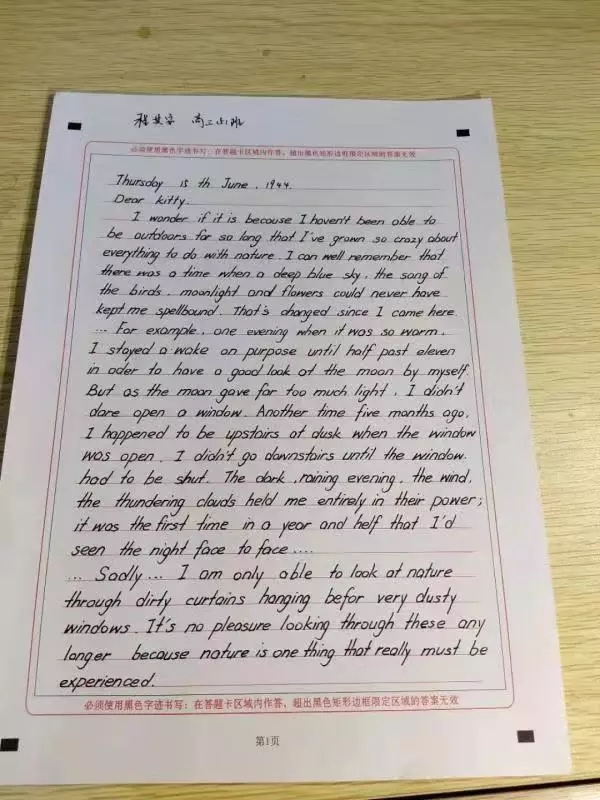 高三51班
必须使用黑色字迹书写：在答题卡区域内作答，超出黑色矩形边框限定区域的答案无效
Thursday 15 th June, 1944.
Dear kitty.
I wonder if it is because I haven't been able to
be outdoors for so long that I've grown so crazy about
everything to do with nature. I can well remember that
there was a time when a deep blue sky, the song of
the birds, moonlight and flowers could never have
kept me spellbound. That's changed since I came here.
... For example, one evening when it was so warm,
I stayed a wake on purpose until half past eleven
in oder to have a good look at the moon by myself.
But as the moon gave far too much light, I didn't
dare open a window. Another time five months ago,
I happened to be upstairs at dusk when the window
was open. I didn't go downstairs until the window.
had to be shut. The dark, raining evening, the wind,
the thundering clouds held me entirely in their power;
it was the first time in a year and helf that I'd
seen the night face to face....
... Sadly... I am only able to look at nature
through dirty curtains hanging befor very dusty
windows. It's no pleasure looking through these any
longer because nature is one thing that really must be
experienced.
必须使用黑色字迹书写：在答题卡区域内作答，超出黑色矩形边框限定区域的答案无效
第1页